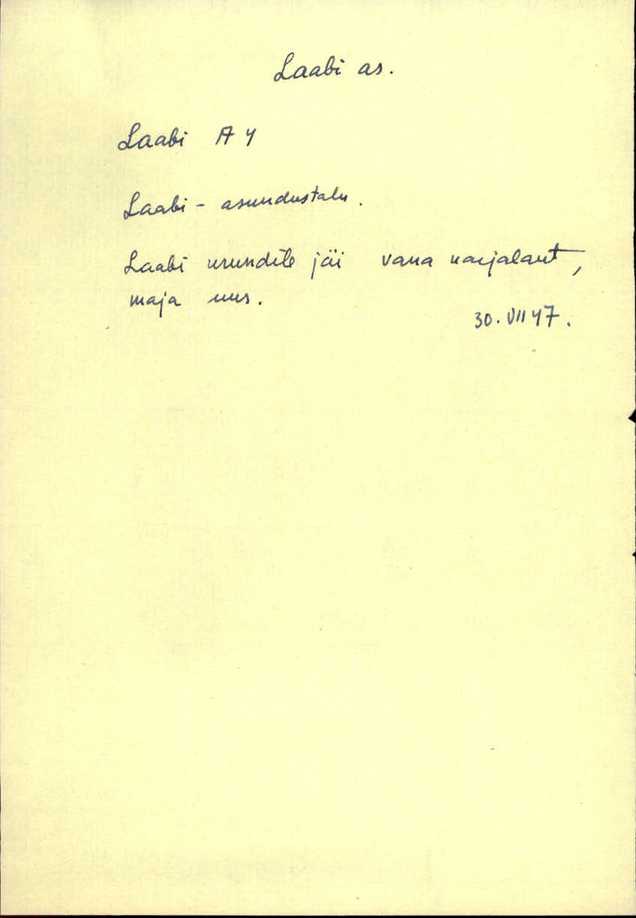 Laabi as.
Laabi A 4
Laabi - asundustalu.
Laabi urundile jäi vana karjalaut,
maja uus.
30. VII 47.